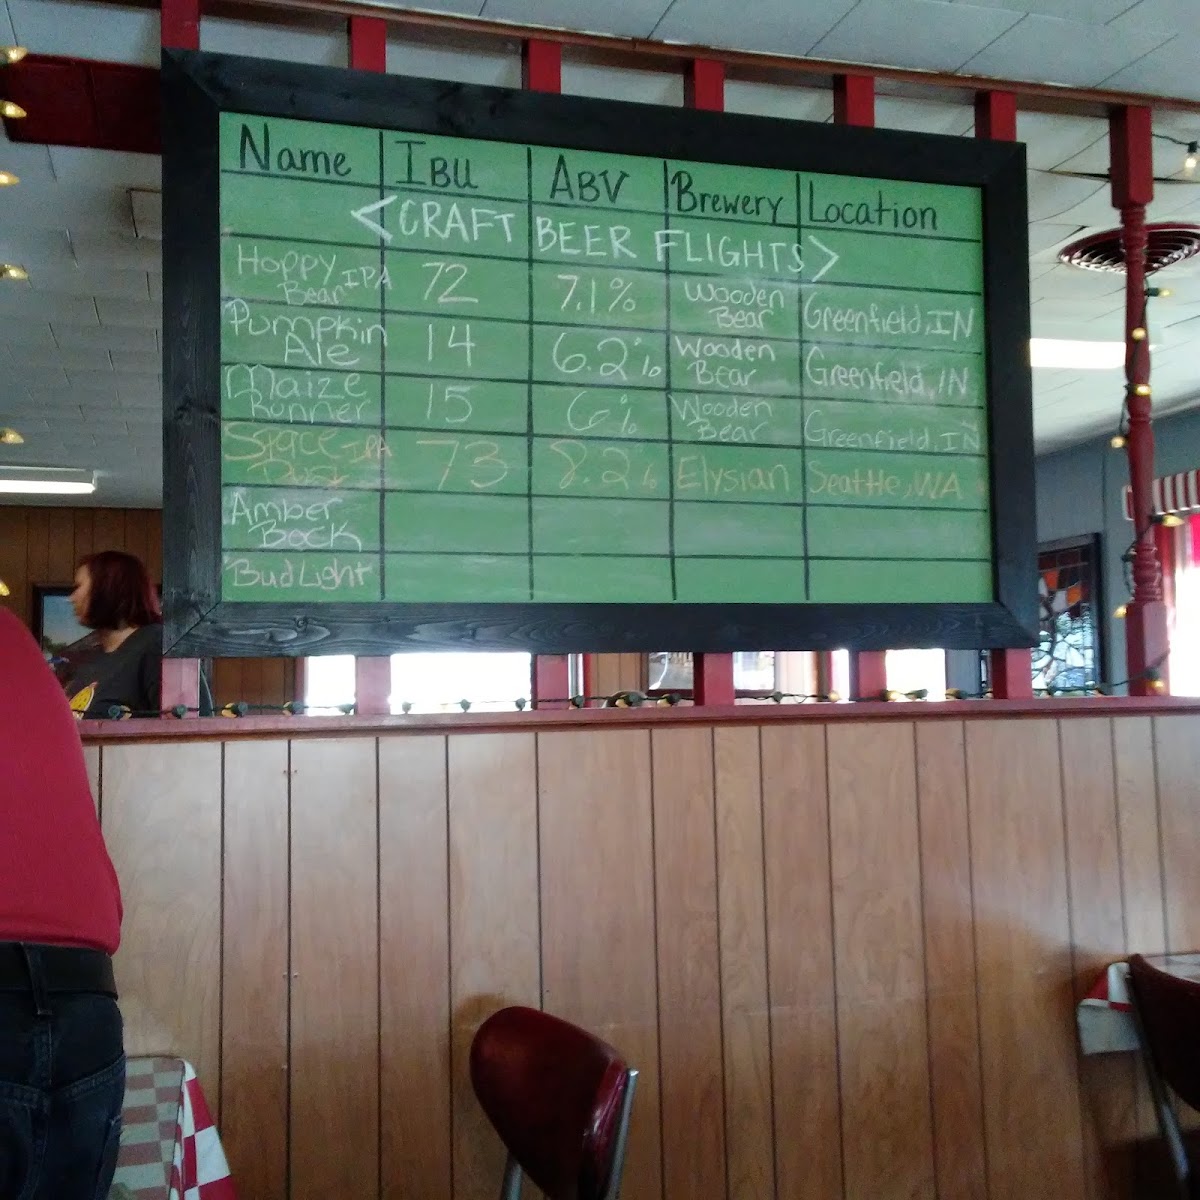 Name IBU ABV Brewery Location
<CRAFT BEER FLIGHTS>
Hoppy Bear IPA 72 7.1% Wooden Bear Greenfield, IN
Pumpkin Ale 14 6.2% Wooden Bear Greenfield, IN
Maize Runner 15 6% Wooden Bear Greenfield, IN
Space Dust IPA 73 8.2% Elysian Seattle, WA
Amber Bock
Bud Light